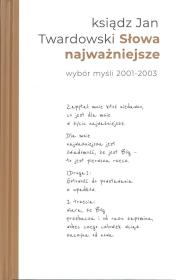 ksiądz Jan
Twardowski Słowa
najważniejsze
wybór myśli 2001-2003
Zapytał mnie ktoś niedawno,
co jest dla mnie
w życiu najważniejsze.
Dla mnie
najważniejsza jest
świadomość, że jest Bóg –
to jest pierwsza rzecz.
(Druga):
Gotowość do powstawania
z upadku.
I trzecia:
wiara, że Bóg
przebacza i od razu zapomina,
wobec czego człowiek może
zaczynać od nowa.